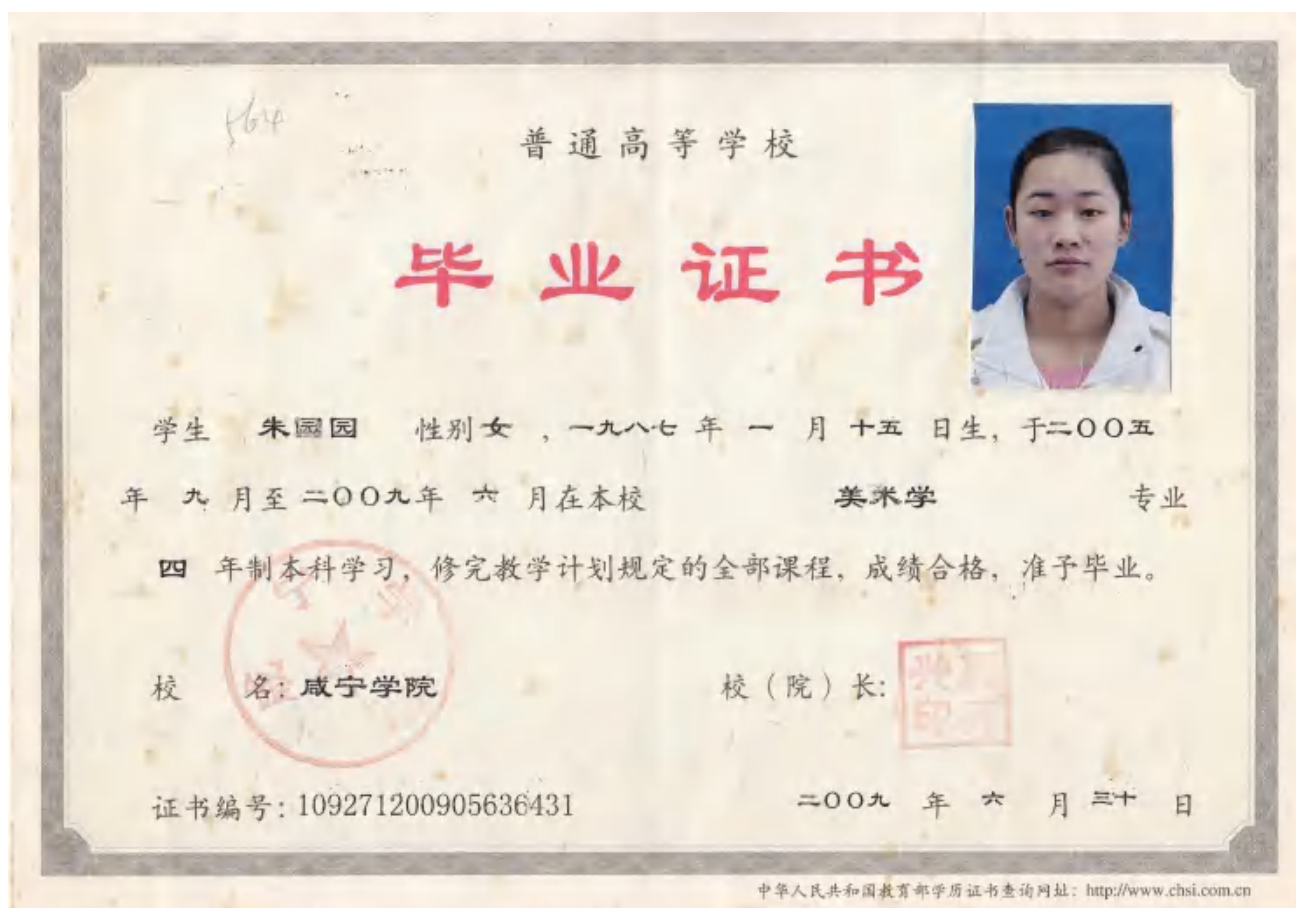 564
普通高等学校
毕业证书
学生 朱园园 性别 女 , 一九八七 年 一 月 十五 日生, 于二〇〇五
年 九 月至 二〇〇九年 六 月在本校 美术学 专业
四 年制本科学习, 修完教学计划规定的全部课程, 成绩合格, 准予毕业。
校 名: 咸宁学院 校 (院) 长:
证书编号: 109271200905636431 二〇〇九 年 六 月 三十 日
中华人民共和国教育部学历证书查询网址: http://www.chsi.com.cn